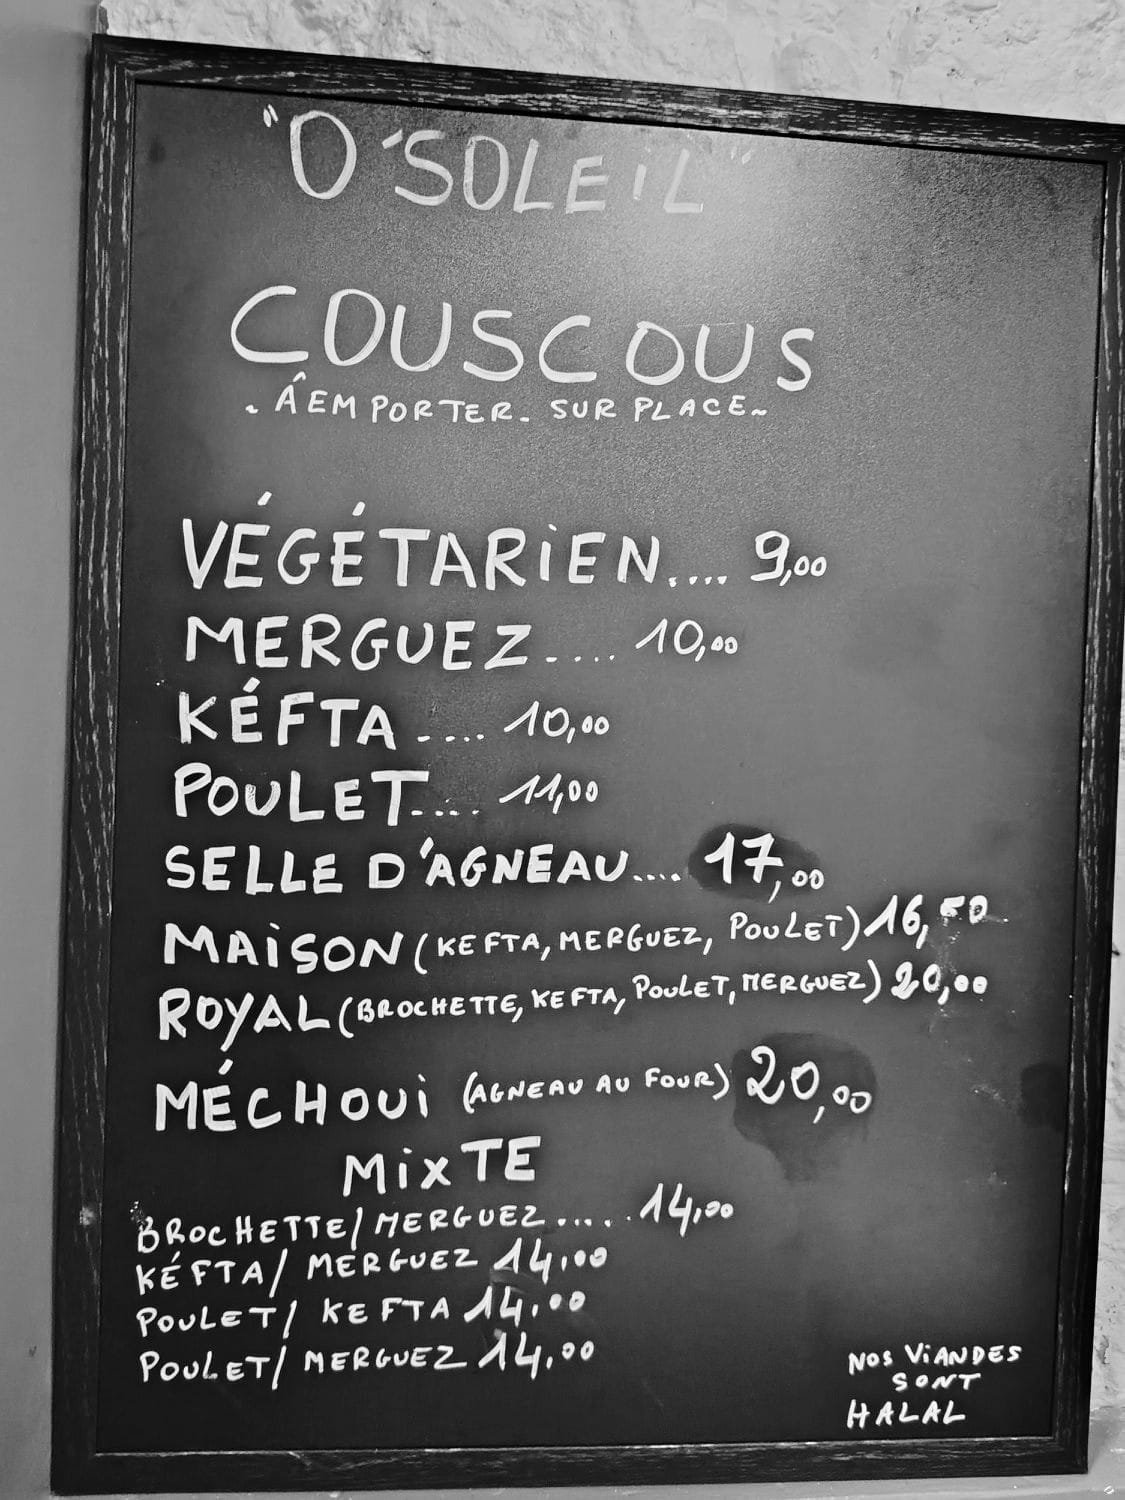 "O'SOLEiL"
COUSCOUS
. Â EMPORTER. SUR PLACE~
VÉGÉTARiEN.... 9,00
MERGUEZ.... 10,00
KÉFTA .... 10,00
POULET.... 11,00
SELLE D'AGNEAU.... 17,00
MAiSON (KEFTA, MERGUEZ, POULET) 16,50
ROYAL (BROCHETTE, KEFTA, POULET, MERGUEZ) 20,00
MÉCHOUi (AGNEAU AU FOUR) 20,00
MixTE
BROCHETTE/ MERGUEZ..... 14,00
KÉFTA/ MERGUEZ 14,00
POULET/ KEFTA 14,00
POULET/ MERGUEZ 14,00
NOS ViANDES
SONT
HALAL